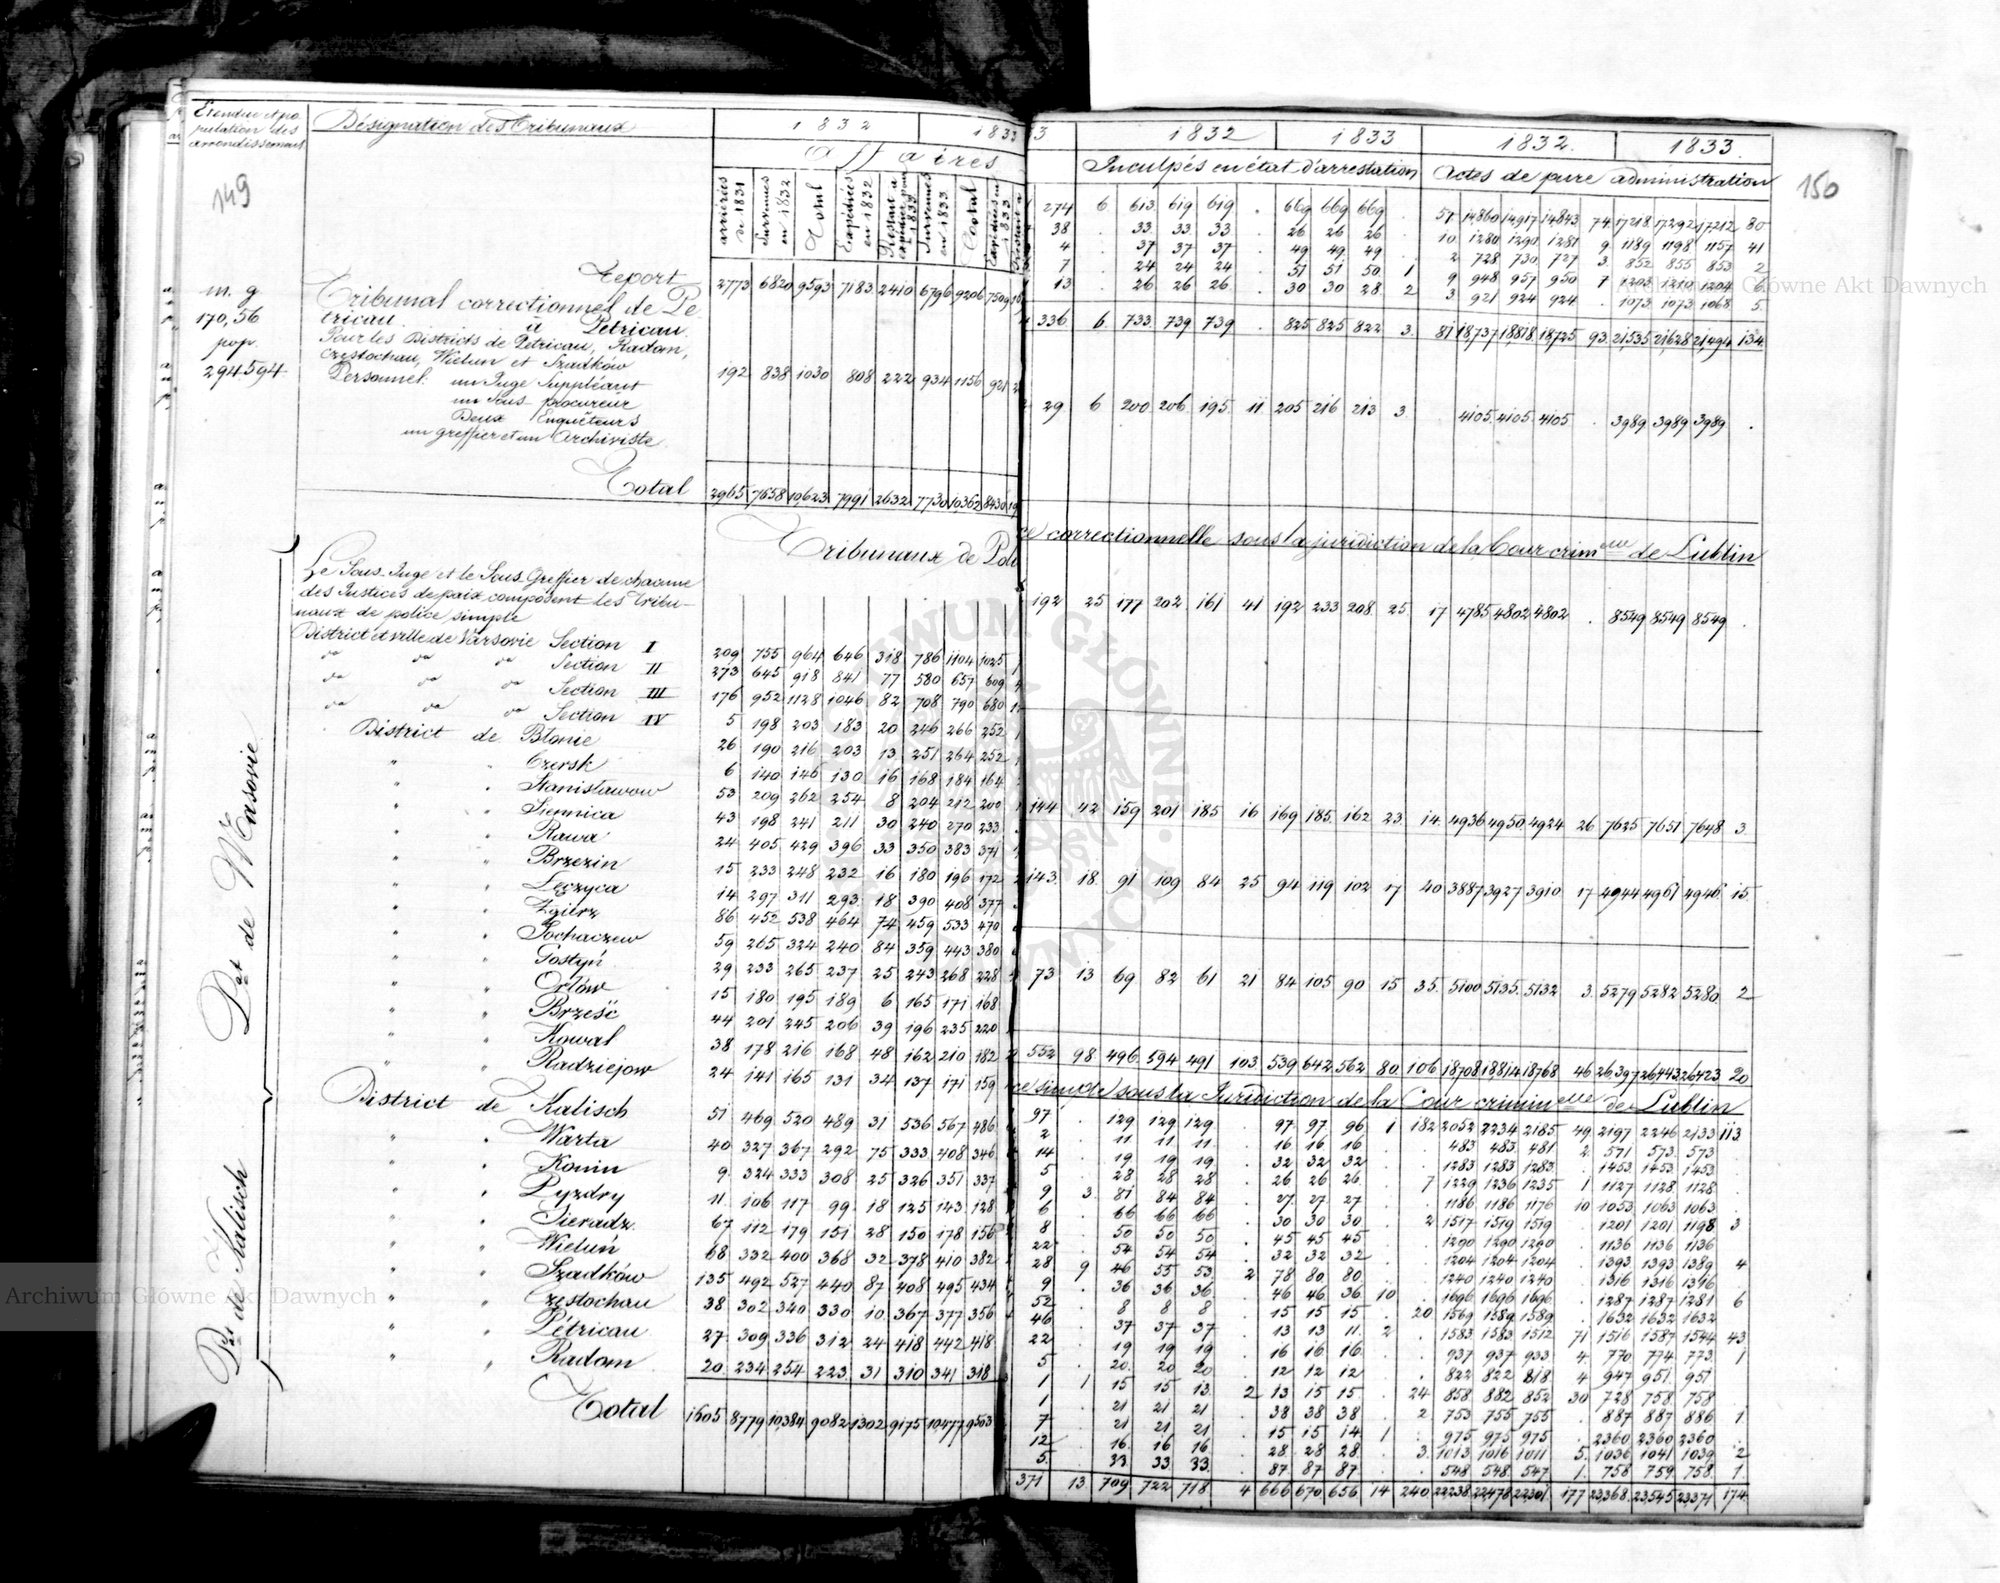 Etendue et po
pulation des
arrondissement
Désignation des Tribunaux
1832
1833
Affaires
arriérées de 1831
Survenues en 1832
Total
Expédiées en 1832
Restant à expédier pour 1833
Survenues en 1833
Total
Expédiées en 1833
149
Report 2773 6820 9593 7183 2410 6796 9206 7509
m. g.
170,56
pop.
294.594
Tribunal correctionnel de Pe
tricau à Petricau
Pour les Districts de Petricau, Radom,
Częstochau, Wielun et Szadków
192 838 1030 808 222 934 1156 921
Personnel: un Juge Suppléant
un Sous-procureur
Deux Enquêteurs
un greffier et un Archiviste
Total 2965 7658 10,623 7991 2632 7730 10,362 8430
Tribunaux de Poli
Le Sous-Juge et le Sous-Greffier de chacune
des Justices de paix composent les tribu-
naux de police simple
Dat de Masovie
District et ville de Varsovie Section I 209 755 964 646 318 786 1104 1025
do do do Section II 273 645 918 841 77 580 657 609
do do do Section III 176 952 1128 1046 82 708 790 680
do do do Section IV 5 198 203 183 20 246 266 252
District de Błonie 26 190 216 203 13 251 264 252
" " Czersk 6 140 146 130 16 168 184 164
" " Stanisławow 53 209 262 254 8 204 212 200
" " Siennica 43 198 241 211 30 240 270 233
" " Rawa 24 405 429 396 33 350 383 371
" " Brzezin 15 233 248 232 16 180 196 172
" " Łęczyca 14 297 311 293 18 390 408 377
" " Zgierz 86 452 538 464 74 459 533 470
" " Sochaczew 59 265 324 240 84 359 443 380
" " Gostyń 29 233 265 237 25 243 268 228
" " Orłów 15 180 195 189 6 165 171 168
" " Brześć 44 201 245 206 39 196 235 220
" " Kowal 38 178 216 168 48 162 210 182
" " Radziejow 24 141 165 131 34 137 171 159
Dat de Kalisch
District de Kalisch 51 469 520 489 31 536 567 486
" " Warta 40 327 367 292 75 333 408 346
" " Konin 9 324 333 308 25 326 351 337
" " Pyzdry 11 106 117 99 18 125 143 128
" " Sieradz 67 112 179 151 28 150 178 156
" " Wieluń 68 332 400 368 32 378 410 382
" " Szadków 135 492 527 440 87 408 495 434
" " Częstochau 38 302 340 330 10 367 377 356
" " Pétricau 27 309 336 312 24 418 442 418
" " Radom 20 234 254 223 31 310 341 318
Total 1605 8779 10,384 9082 1302 9175 10,477 9503
3
1832
1833
1832
1833
Inculpés en état d'arrestation
Actes de pure administration
150
274 6 613 619 619 . 669 669 669 . 57 14860 14917 14843 74 17218 17292 17212 80
38 . 33 33 33 . 26 26 26 . 10 1280 1290 1281 9 1189 1198 1157 41
4 . 37 37 37 . 49 49 49 . 2 728 730 727 3 852 855 853 2
7 . 24 24 24 . 51 51 50 1 9 948 957 950 7 1203 1210 1204 6
13 . 26 26 26 . 30 30 28 2 3 921 924 924 . 1073 1073 1068 5
336 6 733 739 739 . 825 825 822 3 81 18,737 18,818 18,725 93 21,535 21,628 21,494 134
29 6 200 206 195 11 205 216 213 3 4105 4105 4105 . 3989 3989 3989 .
ce correctionnelle sous la juridiction de la Cour crimelle de Lublin
192 25 177 202 161 41 192 233 208 25 17 4785 4802 4802 . 8549 8549 8549 .
144 42 159 201 185 16 169 185 162 23 14 4936 4950 4924 26 7625 7651 7648 3
143 18 91 109 84 25 94 119 102 17 40 3887 3927 3910 17 4944 4961 4946 15
73 13 69 82 61 21 84 105 90 15 35 5100 5135 5132 3 5279 5282 5280 2
552 98 496 594 491 103 539 642 562 80 106 18708 18,814 18768 46 26,397 26443 26423 20
ce simple sous la Juridiction de la Cour criminelle de Lublin
97 . 129 129 129 . 97 97 96 1 182 2052 2234 2185 49 2197 2246 2133 113
2 . 11 11 11 . 16 16 16 . . 483 483 481 2 571 573 573 .
14 . 19 19 19 . 32 32 32 . . 1283 1283 1283 . 1453 1453 1453 .
5 . 28 28 28 . 26 26 26 . 7 1229 1236 1235 1 1127 1128 1128 .
9 3 81 84 84 . 27 27 27 . . 1186 1186 1176 10 1053 1063 1063 .
6 . 66 66 66 . 30 30 30 . 2 1517 1519 1519 . 1201 1201 1198 3
8 . 50 50 50 . 45 45 45 . . 1290 1290 1290 . 1136 1136 1136 .
22 . 54 54 54 . 32 32 32 . . 1204 1204 1204 . 1393 1393 1389 4
28 9 46 55 53 2 78 80 80 . . 1240 1240 1240 . 1316 1316 1316 .
9 . 36 36 36 . 46 46 36 10 . 1696 1696 1696 . 1287 1287 1281 6
52 . 8 8 8 . 15 15 15 . 20 1569 1589 1589 . 1632 1632 1632 .
46 . 37 37 37 . 13 13 11 2 . 1583 1583 1512 71 1516 1587 1544 43
22 . 19 19 19 . 16 16 16 . . 937 937 933 4 770 774 773 1
5 . 20 20 20 . 12 12 12 . . 822 822 818 4 947 951 951 .
1 1 15 15 13 2 13 15 15 . 24 858 882 852 30 728 758 758 .
1 . 21 21 21 . 38 38 38 . 2 753 755 755 . 887 887 886 1
7 . 21 21 21 . 15 15 14 1 . 975 975 975 . 2360 2360 2360 .
12 . 16 16 16 . 28 28 28 . 3 1013 1016 1011 5 1036 1041 1039 2
5 . 33 33 33 . 87 87 87 . . 548 548 547 1 758 759 758 1
371 13 709 722 718 4 666 670 656 14 240 22,238 22,478 22301 177 23,368 23,545 23,371 174
Archiwum Główne Akt Dawnych
Główne Akt Dawnych
ARCHIWUM GŁÓWNE AKT DAWNYCH